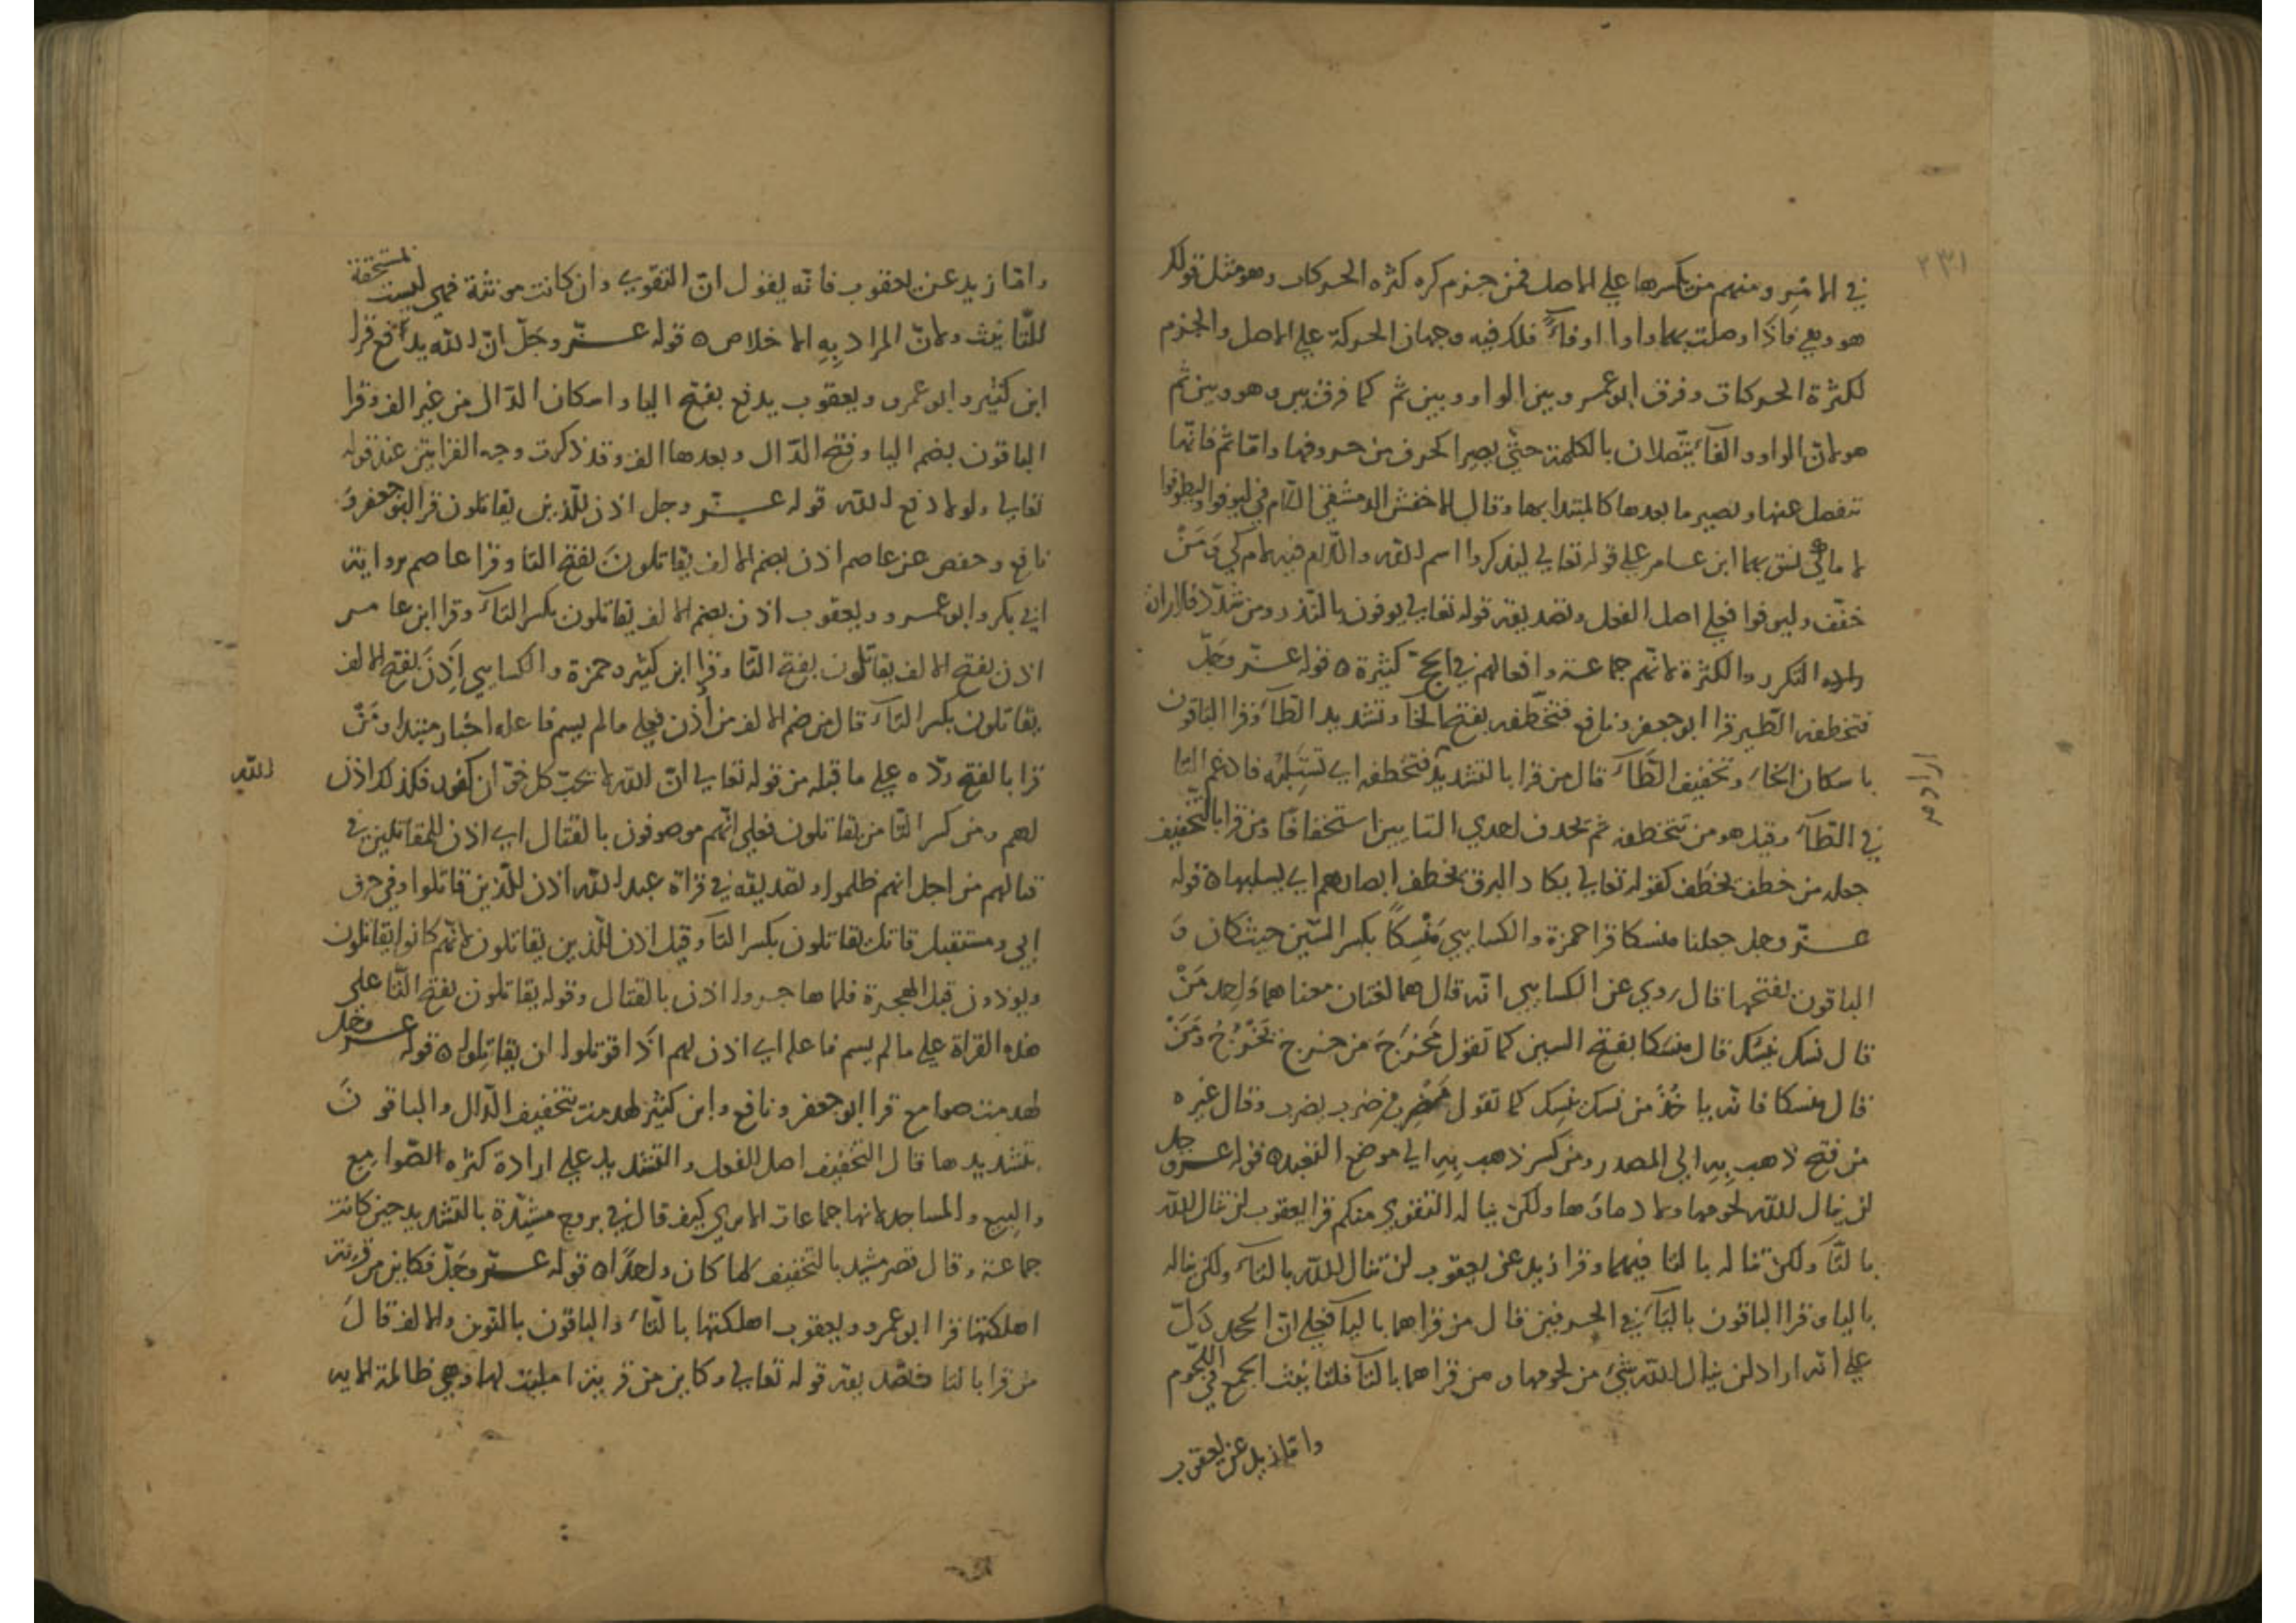 ٢٣١
في الامر ومنهم من يكسرها على الاصل فمن جزم كره كثرة الحركات وهو مثل قولك
هو وهي فاذا وصلت بهما واوا او فاءً فلك فيه وجهان الحركة على الاصل والجزم
لكثرة الحركات وفرق ابو عمرو بين الواو وبين ثم كما فرق بين وهو وبين ثم
هو لان الواو والفاء يتصلان بالكلمة حتى يصير الحرف من حروفها واما ثم فانها
تنفصل عنها ويصير ما بعدها كالمبتدا بها وقال الاخفش الدمشقي اللام في ليوفوا وليطوفوا
لام كي نسق بها ابن عامر على قوله تعالى ليذكروا اسم الله واللام فيه لام كي ومَنْ
خفف وليوفوا فعلى اصل الفعل وتصديقه قوله تعالى يوفون بالنذر ومن شدد فاراد ان
التكرر والكثرة لانهم جماعة وافعالهم في الحج كثيرة ٥ قوله عز وجل
فتخطفه الطير قرا ابو جعفر ونافع فتخطفه بفتح الخاء وتشديد الطاء وقرا الباقون
باسكان الخاء وتخفيف الطاء قال من قرا بالتشديد فتخطفه اي تستلبه فادغم التا
في الطاء وقيل هو من تتخطفه ثم تحذف احدي التايين استخفافًا ومن قرا بالتخفيف
جعله من خطف يخطف كقوله تعالى يكاد البرق يخطف ابصارهم اي يسلبها ٥ قوله
عز وجل جعلنا منسكا قرا حمزة والكسايي مَنْسِكًا بكسر السين حيث كان وَ
الباقون بفتحها قال روي عن الكسايي انه قال هما لغتان معناهما واحد مَنْ
قال نسك ينسك قال منسكا بفتح السين كما تقول مَخْرَج من خرج يَخْرُجُ ومَنْ
قال منسكا فانه ياخُذُ من نسك ينسِك كما تقول مَضْرِب من ضرب يضرب وقال غيره
من فتح ذهب بِهِ الى المصدر ومن كسر ذهب بِهِ الى موضع التعبد ٥ قوله عز وجل
لن ينال الله لحومها ولا دماؤها ولكن يناله التقوي منكم قرا يعقوب لن تنال الله
بالتاء ولكن تناله بالتا فيهما وقرا زيد عن يعقوب لن تنال الله بالتاء ولكن يناله
بالياء وقرا الباقون بالياء في الحرفين قال من قراهما باليا فعلى ان الحمد دَلّ
على انه اراد لن ينال الله شيء من لحومها ومن قراهما بالتا فلتانيث الجمع في اللحوم
واما زيد عن يعقوب
واما زيد عن يعقوب فانه يقول ان التقوي وان كانت مونثة فهي ليست لمستحقة
للتانيث ولان المراد بِهِ الاخلاص ٥ قوله عز وجل ان الله يدافع قرا
ابن كثير وابو عمرو ويعقوب يدفع بفتح اليا واسكان الدال من غير الف وقرا
الباقون بضم اليا وفتح الدال وبعدها الف وقد ذكرت وجه القراتين عند قوله
تعالى ولولا دفع الله قوله عز وجل اذن للذين يقاتلون قرا ابو جعفر وَ
نافع وحفص عن عاصم اذن بضم الالف يقاتلونَ بفتح التا وقرا عاصم برواية
ابي بكر وابو عمرو ويعقوب اذن بضم الالف يقاتلون بكسر التاء وقرا ابن عامر
اذن بفتح الالف يقاتلون بفتح التا وقرا ابن كثير وحمزة والكسايي اَذِنَ بفتح الالف
يقاتلون بكسر التاء قال من ضم الالف من أُذن فعلى ما لم يسم فاعله اخبار مبتدا ومَنْ
قرا بالفتح رده على ما قبله من قوله تعالى ان الله لا يحب كل خوان كفور فكذلك اذن
الله
لهم ومن كسر التا من يقاتلون فعلى انهم موصوفون بالقتال اي اذن للمقاتلين في
قتالهم من اجل انهم ظلموا وتصديقه في قراة عبد الله اذن للذين قاتلوا وفي حرف
ابي ومستقبل قاتل يقاتلون بكسر التاء وقيل اذن للذين يقاتلون لانهم كانوا يقاتلون
ويوذون قبل الهجرة فلما هاجروا اذن بالقتال وقوله يقاتلون بفتح التا على
هذه القراة على ما لم يسم فاعله اي اذن لهم اذا قوتلوا ان يقاتِلوا ٥ قوله عز وجل
لهدمت صوامع قرا ابو جعفر ونافع وابن كثير لهدمت بتخفيف الدال والباقونَ
بتشديدها قال التخفيف اصل الفعل والتشديد على ارادة كثرة الصوامع
والبيع والمساجد لانها جماعات الا تري كيف قال في بروج مشيّدة بالتشديد حين كانت
جماعة وقال قصر مشيد بالتخفيف لما كان واحدًا ٥ قوله عز وجل فكاين من قرية
اهلكتها قرا ابو عمرو ويعقوب اهلكتها بالتاء والباقون بالنون والالف قالَ
من قرا بالتا فتصديقه قوله تعالى وكاين من قرية امليت لها وهي ظالمة الايه